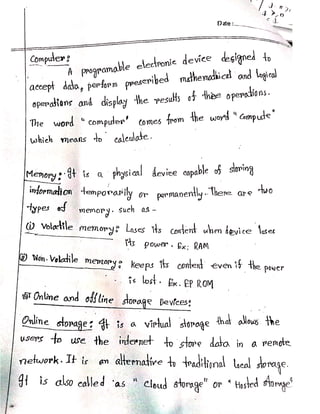 Date:
Computer:
A programable electronic device designed to
accept data, perform prescribed mathematical and logical
operations and display the results of these operations.
The word "computer" comes from the word "Compute"
which means to calculate.
Memory: It is a physical device capable of storing
information temporarily or permanently. There are two
types of memory. such as -
(i) Volatile memory: Loses its content when device loses
its power. Ex; RAM
(ii) Non-Volatile memory: Keeps its content even if the power
is lost. Ex. EP ROM
Online and offline storage Devices:
Online storage: It is a virtual storage that allows the
users to use the internet to store data in a remote
network. It is an alternative to traditional local storage.
It is also called as "Cloud storage" or "Hosted storage"